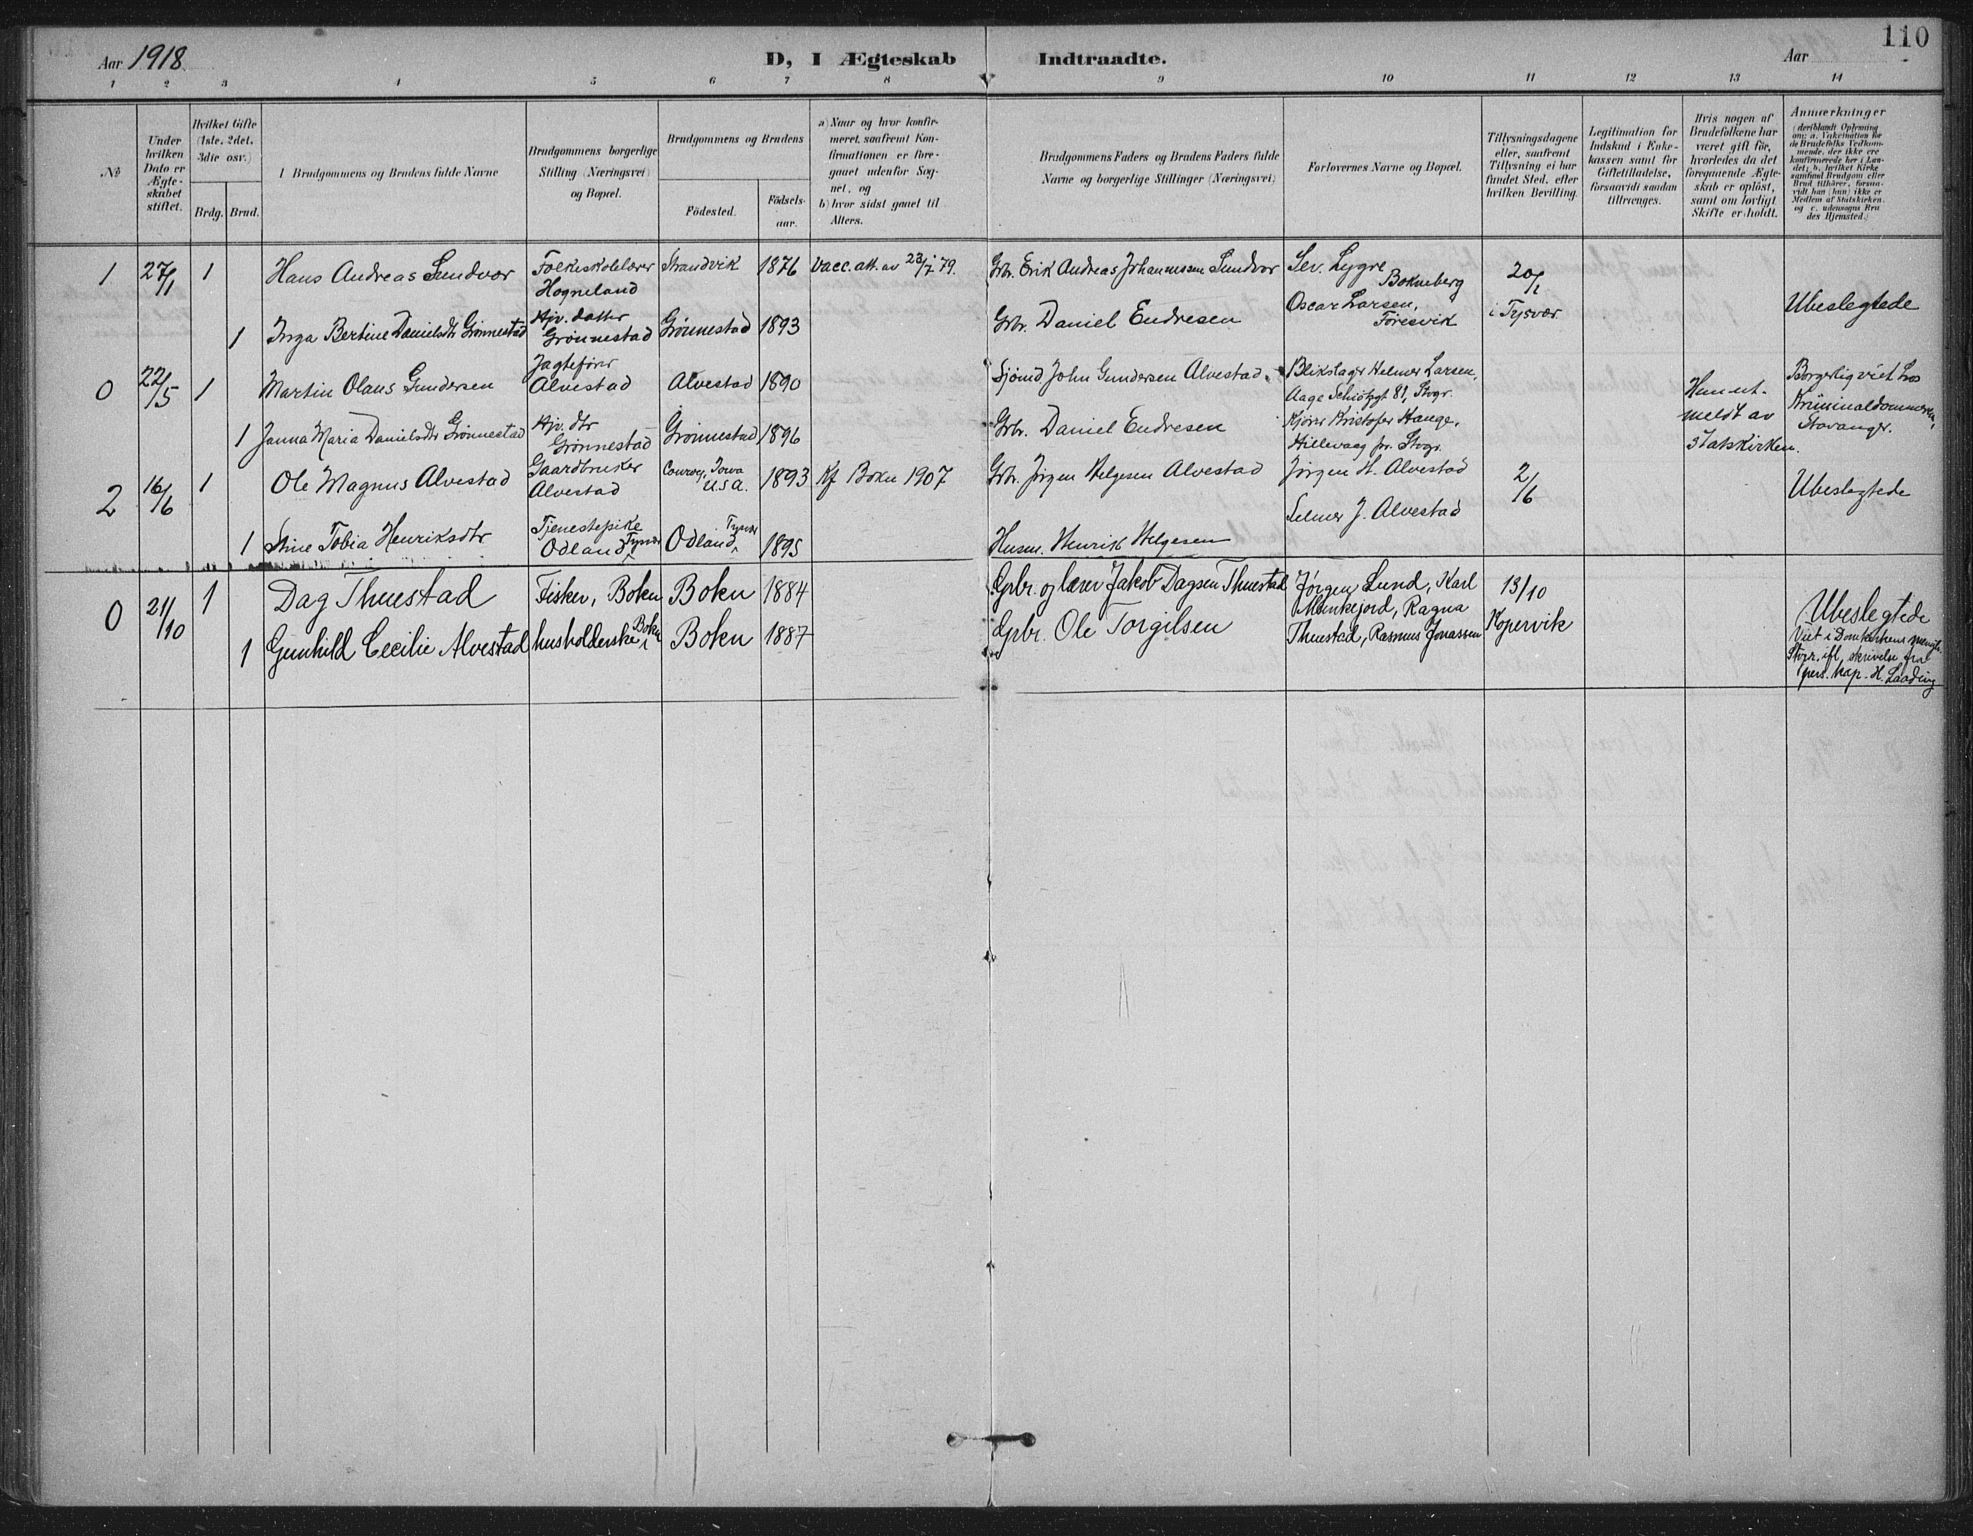 110
Aar 1918.
D, I Ægteskab Indtraadte.
Aar
1 2 3 4 5 6 7 8 9 10 11 12 13 14
No
Under hvilken Dato er Ægteskabet stiftet.
Hvilket Gifte (1ste, 2det, 3die osv.)
Brdg. Brud.
Brudgommens og Brudens fulde Navne
Brudgommens borgerlige Stilling (Næringsvei) og Bopæl.
Brudgommens og Brudens
Fødested.
Fødselsaar.
a) Naar og hvor konfirmeret, saafremt Konfirmationen er foregaaet udenfor Sognet, og
b) hvor sidst gaaet til Alters.
Brudgommens Faders og Brudens Faders fulde Navne og borgerlige Stillinger (Næringsvei)
Forlovernes Navne og Bopæl.
Tillysningsdagene eller, saafremt Tillysning ei har fundet Sted, efter hvilken Bevilling.
Legitimation for Indskud i Enkekassen samt for Giftetilladelse, forsaavidt saadan tiltrænges.
Hvis nogen af Brudefolkene har været gift før, hvorledes da det foregaaende Ægteskab er opløst, samt om lovligt Skifte er holdt.
Anmærkninger (deriblandt Oplysning om: a. Vakcination for de Brudefolks Vedkommende, der ikke ere konfirmerede her i Landet; b. hvilket Kirkesamfund Brudgom eller Brud tilhører, forsaavidt han (hun) ikke er Medlem af Statskirken, og c. udensogns Brudes Hjemsted.)
1 27/1 1 Hans Andreas Sundvor Folkeskolelærer Hogneland Strandvik 1876 Vacc. att. av 23/7 79. Grbr. Erik Andreas Johannessen Sundvor Sev. Lygre Bokneberg 20/1
1 Inga Bertine Danielsdtr Grønnestad Hjv. datter Grønnestad Grønnestad 1893 Grbr. Daniel Endresen Oscar Larsen, Føresvik i Tysvær Ubeslegtede
0 22/5 1 Martin Olaus Gundersen Jagtefører Alvestad Alvestad 1890 Sjömd John Gundersen Alvestad. Blikslager Helmer Larsen, Aage Schiötzgt 81, Stvgr. Han utmeldt av Statskirken. Borgerlig viet hos Kriminaldommeren, Stavanger.
1 Janna Maria Danielsdtr Grønnestad Hjv. dtr Grønnestad Grönnestad 1896 Grbr. Daniel Endresen Kjører Kristofer Hauge, Hillevaag pr. Stvgr.
2 16/6 1 Ole Magnus Alvestad Gaardbruker Alvestad Conroy, Iowa U.S.A. 1893 Kf Bokn 1907 Grbr. Jørgen Helgesen Alvestad Jørgen H. Alvestad 2/6 Ubeslegtede
1 Stine Tobia Henriksdtr Tjenestepike Odland Tysvær Odland Tysvær 1895 Husm. Henrik Helgesen Selmer J. Alvestad
0 21/10 1 Dag Thuestad Fisker, Bokn Bokn 1884 Gbr. og lærer Jakob Dagsen Thuestad Jørgen Lund, Karl Munkejord, Ragna 13/10
1 Gunhild Cecilie Alvestad husholderske, Bokn Bokn 1887 Gbr. Ole Torgilsen Thuestad, Rasmus Jonassen Kopervik Ubeslegtede
Viet i Domkirkens menigh. Stvgr. ifl. skrivelse fra pers. kap. H. Laading